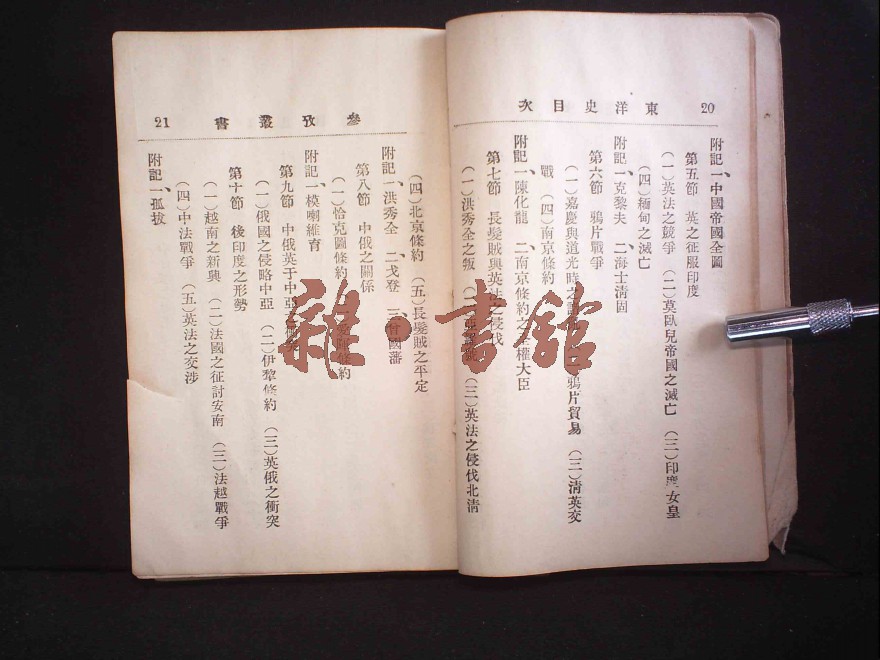 20 東洋史目次
附記一、中國帝國全圖
第五節 英之征服印度
（一）英法之競爭 （二）莫臥兒帝國之滅亡 （三）印度女皇
（四）緬甸之滅亡
附記一、克黎夫 二、海士淸固
第六節 鴉片戰爭
（一）嘉慶與道光時之 鴉片貿易 （三）淸英交
戰 （四）南京條約
附記一、陳化龍 二、南京條約之全權大臣
第七節 長髮賊與英法之侵伐
（一）洪秀全之叛 （三）英法之侵伐北淸
參攷叢書 21
（四）北京條約 （五）長髮賊之平定
附記一、洪秀全 二、戈登 三、曾國藩
第八節 中俄之關係
（一）恰克圖條約 條約
附記一、模喇維育
第九節 中俄英于中亞之衝突
（一）俄國之侵略中亞 （二）伊犂條約 （三）英俄之衝突
第十節 後印度之形勢
（一）越南之新興 （二）法國之征討安南 （三）法越戰爭
（四）中法戰爭 （五）英法之交涉
附記一、孤拔
雜·書館